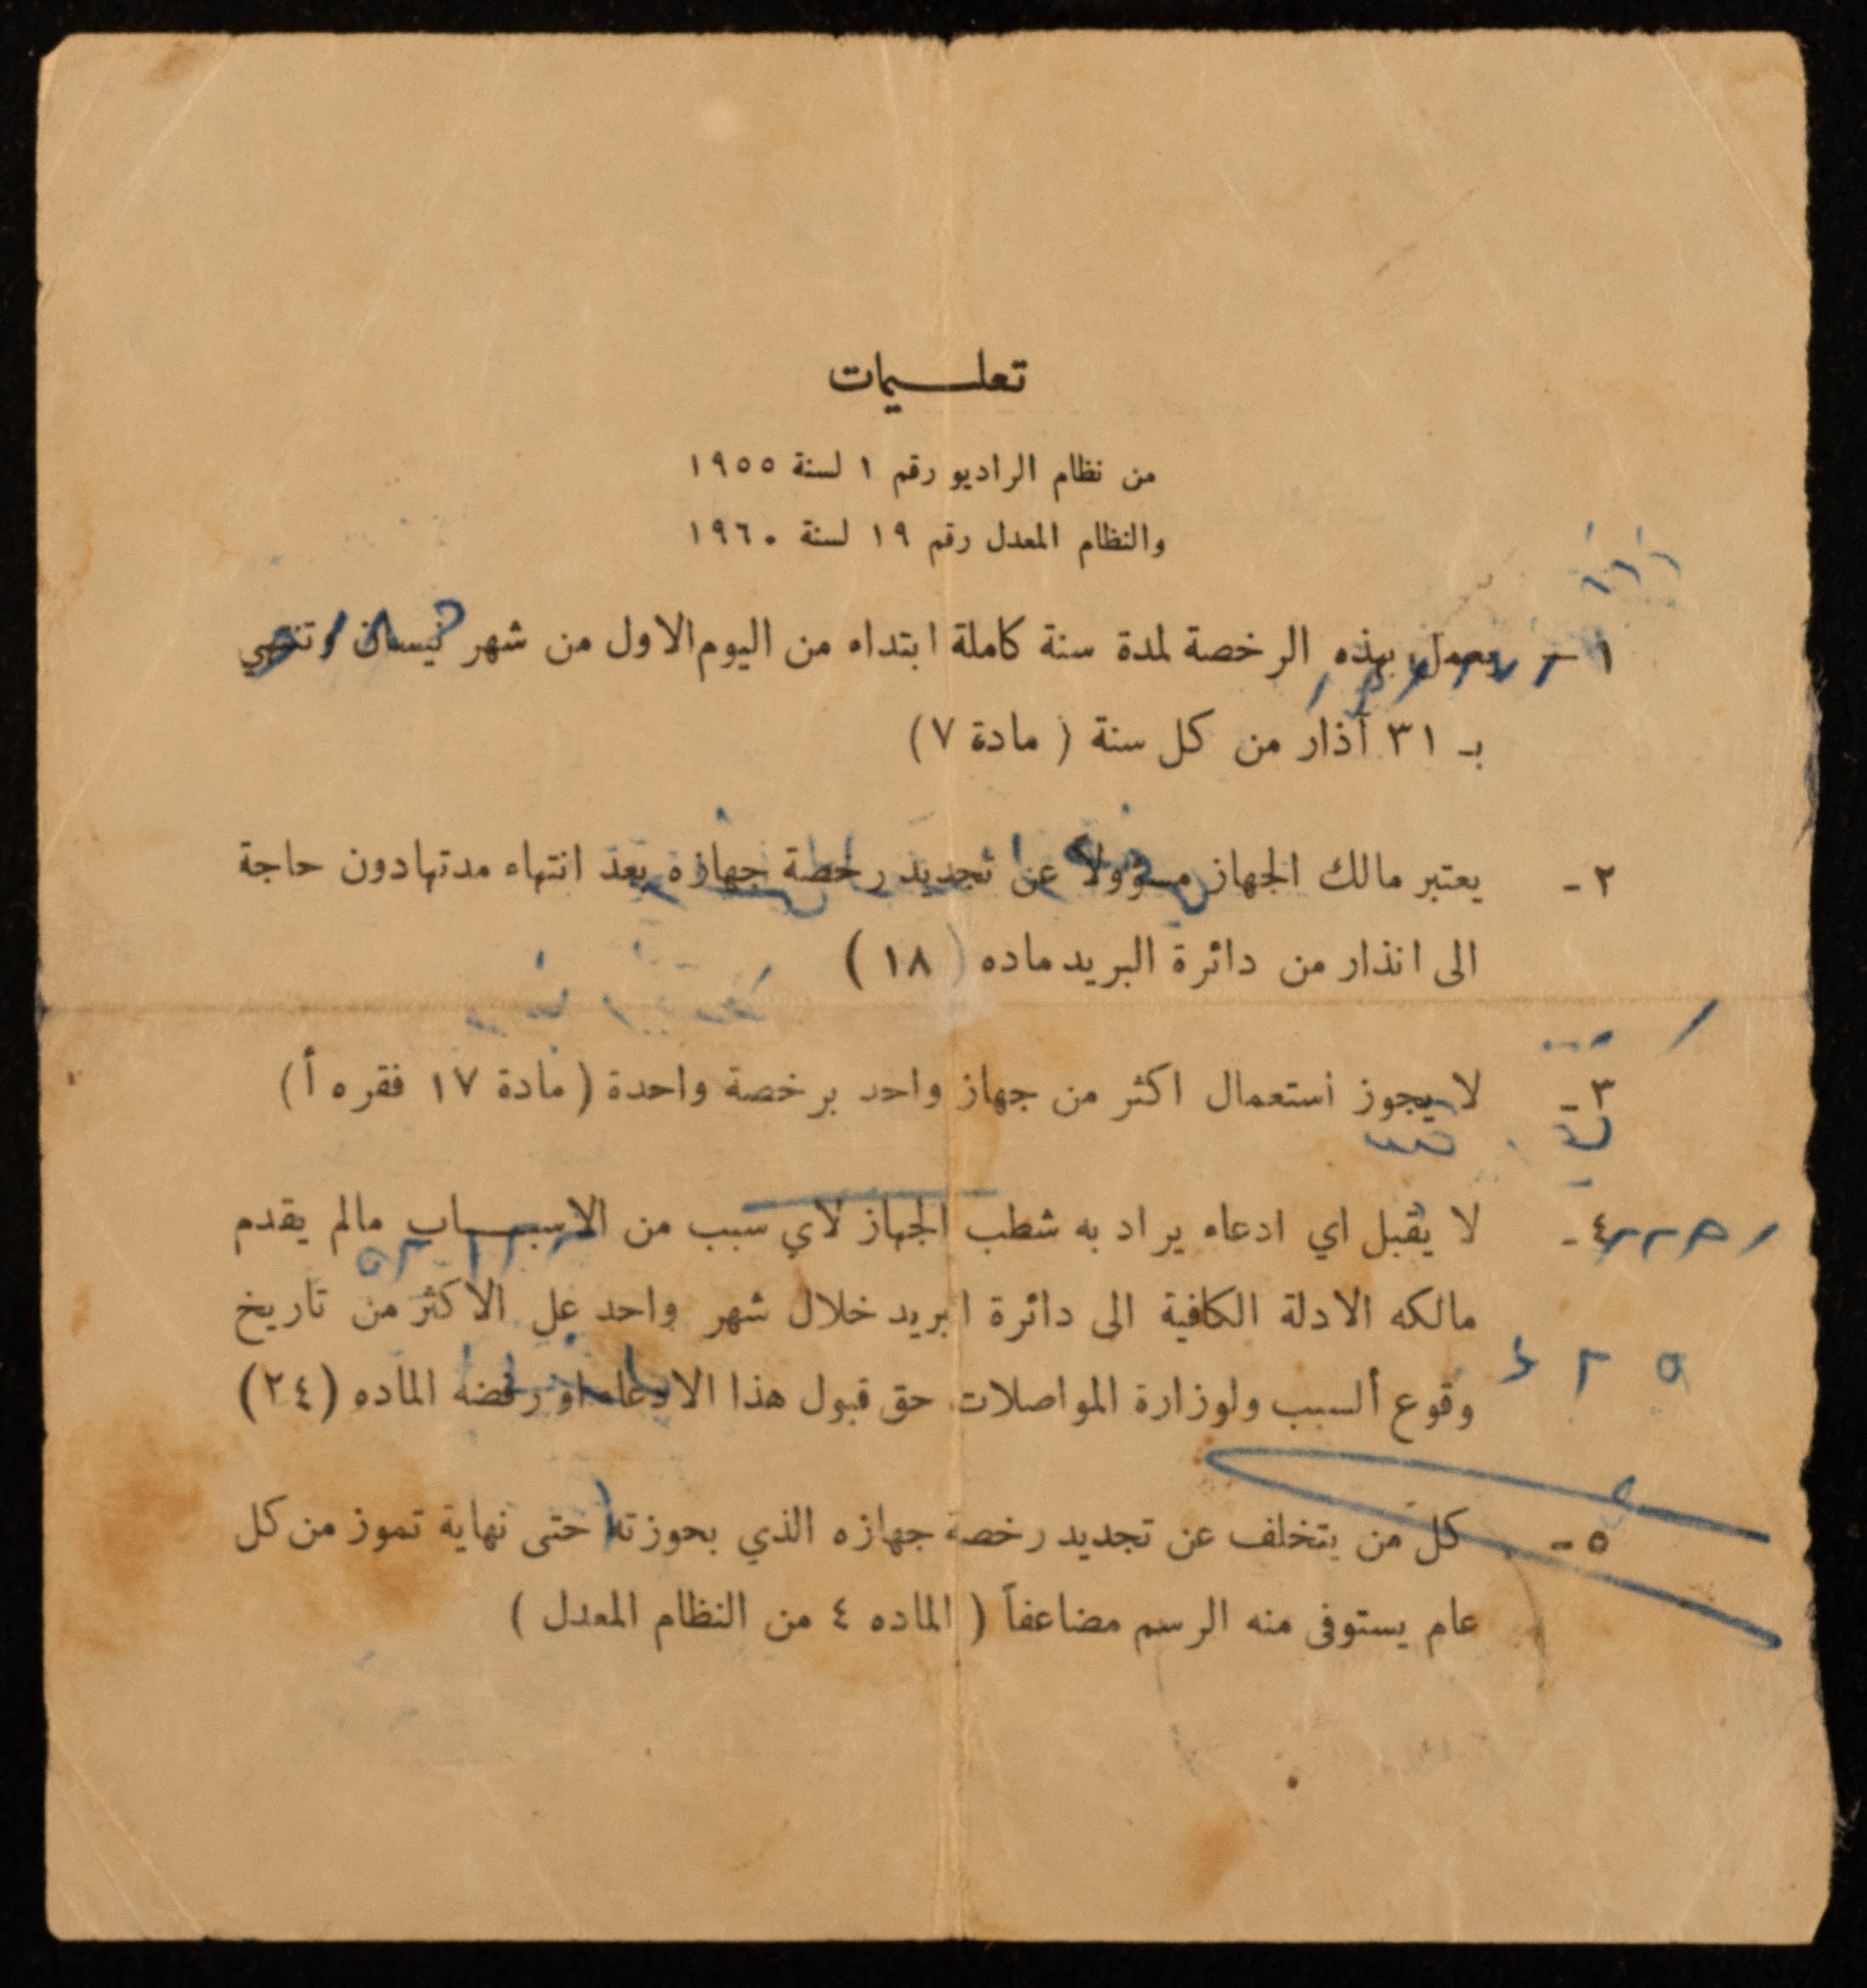 تعليمات
من نظام الراديو رقم ١ لسنة ١٩٥٥
والنظام المعدل رقم ١٩ لسنة ١٩٦٠
١ – يعمل بهذه الرخصة لمدة سنة كاملة ابتداه من اليوم الاول من شهر نيسان وتنتهي
بـ ٣١ آذار من كل سنة ( مادة ٧ )
٢ - يعتبر مالك الجهاز مسؤولاً عن تجديد رخصة جهازه بعد انتهاء مدتها دون حاجة
الى انذار من دائرة البريد ماده ( ١٨ )
٣ - لا يجوز استعمال اكثر من جهاز واحد برخصة واحدة ( مادة ١٧ فقره أ )
٤ - لا يقبل اي ادعاه يراد به شطب الجهاز لأي سبب من الاسباب مالم يقدم
مالكه الادلة الكافية الى دائرة ابريد خلال شهر واحد عل الاكثر من تاريخ
وقوع ألسبب ولوزارة المواصلات حق قبول هذا الادعاه او رفضه الماده ( ٢٤ )
٥ - كل من يتخلف عن تجديد رخصة جهازه الذي بحوزته حتى نهاية تموز من كل
عام يستوفى منه الرسم مضاعفاً ( الماده ٤ من النظام المعدل )